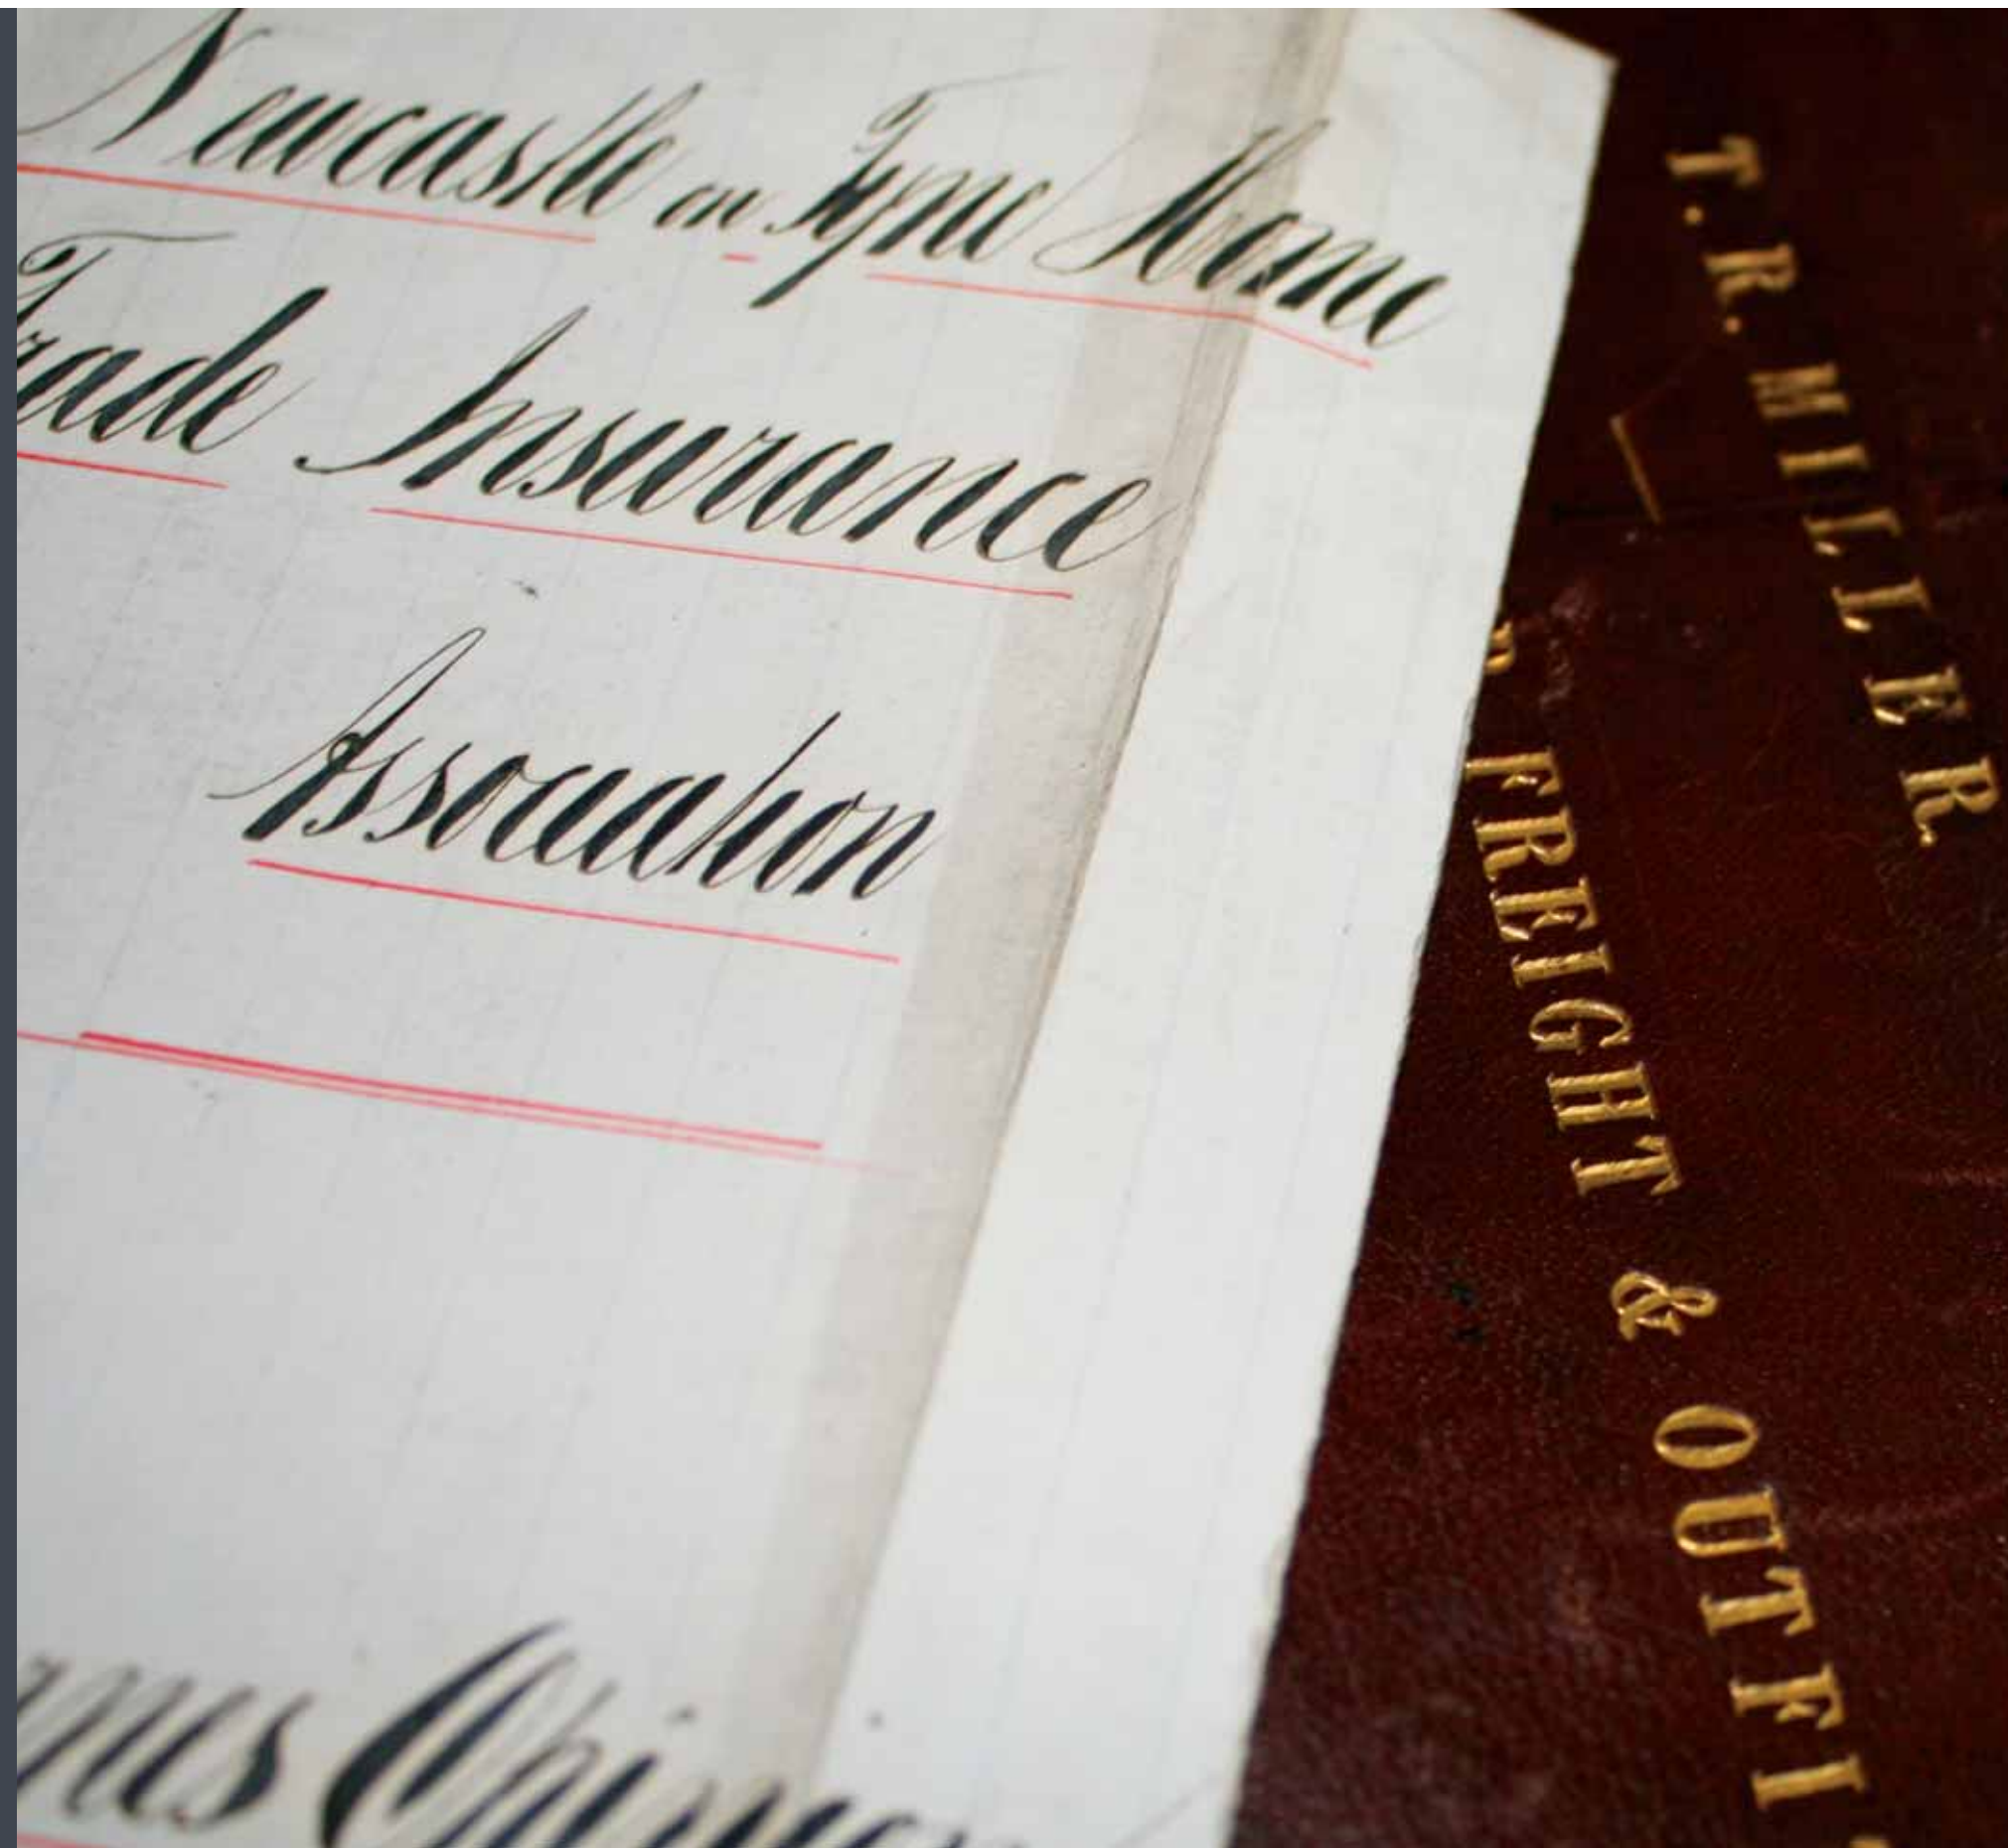 Newcastle on Tyne Home
Trade Insurance
Association
Opinion
T. R. MILLER.
FREIGHT & OUTFI